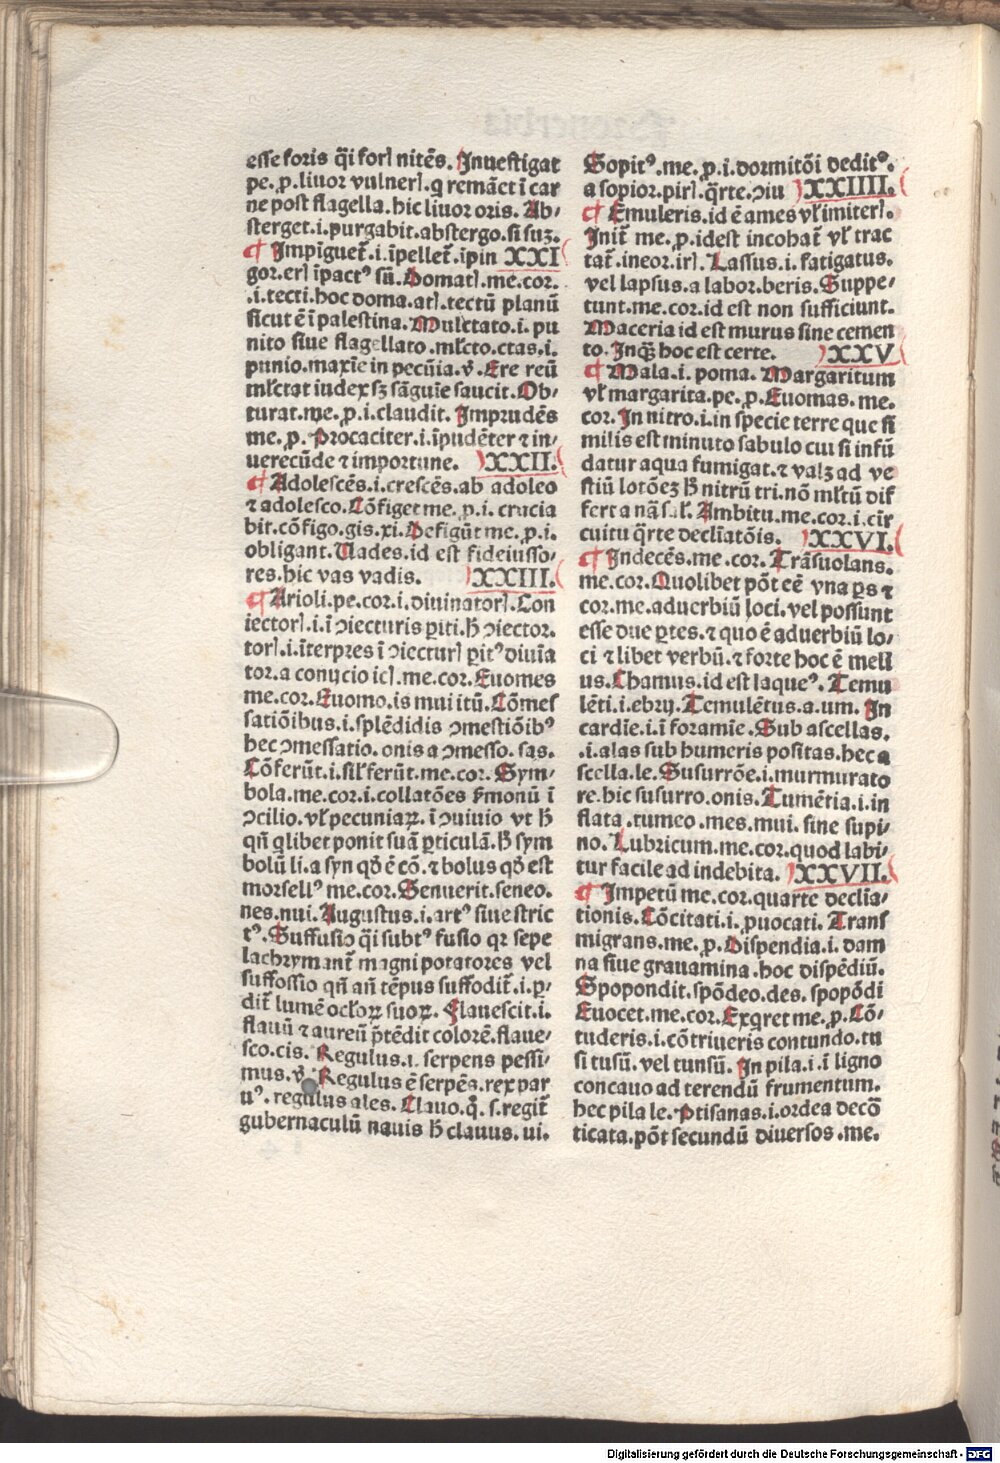 esse foris q̄i forꝭ nitēs. Inuestigat
pe. ꝓ. liuor vulnerꝭ. q remāet ī car
ne post flagella. hic liuor oris. Ab-
sterget .i. purgabit. abstergo. si suꝫ.
¶ Impīguet̄ .i. īpellet̄. īpin XXI
gor. erꝭ īpactꝰ sū. Domatꝭ. me. cor.
.i. tecti. hoc doma. atꝭ. tectū planū
sicut ē ī palestina. Mulctato .i. pu
nito siue flagellato. ml̄cto. ctas .i.
punio. maxīe in pecūia. v̄. Ere reū
ml̄ctat iudex sꝫ sāguīe saucit. Ob-
turat. me. ꝓ. i. claudit. Imprudēs
me. ꝓ. Procaciter .i. īpudēter ⁊ in-
uerecūde ⁊ importune. XXII.
¶ Adolescēs .i. crescēs. ab adoleo
⁊ adolesco. Cōfiget me. ꝓ. i. crucia
bit. cōfigo. gis. xi. Defigūt me. ꝓ. i.
obligant. Uades. id est fideiusso-
res. hic vas vadis. XXIII.
¶ Arioli. pe. cor. i. diuinatorꝭ. Con
iectorꝭ .i. ī ꝯiecturis ꝑiti. h̄ ꝯiector.
torꝭ .i. īterpres ī ꝯiecturꝭ ꝑitꝰ diuīa
tor. a conycio icꝭ. me. cor. Euomes
me. cor. Euomo. is mui itū. Cōmes
satiōibus .i. splēdidis ꝯmestiōibꝰ
hec ꝯmessatio. onis a ꝯmesso. sas.
Cōferūt .i. sil̄ ferūt. me. cor. Sym-
bola. me. cor. i. collatōes ẜmonū ī
ꝯcilio. vl̄ pecuniaꝝ. ī ꝯuiuio vt h̄
qn̄ qlibet ponit suā ꝑticulā. h̄ sym
bolū li. a syn qḋ ē cō. ⁊ bolus qḋ est
morsellꝰ me. cor. Senuerit. seneo.
nes. nui. Augustus .i. artꝰ siue stric
tꝰ. Suffusio q̄i subtꝰ fusio qꝛ sepe
lachrymant̄ magni potatores vel
suffossio qn̄ an̄ tēpus suffodit̄ .i. ꝑ-
dit̄ lumē ocl̄oꝝ suoꝝ. Flauescit .i.
flauū ⁊ aureū p̄tēdit colorē. flaue-
sco. cis. Regulus .i. serpens pessi-
mus. v̄. Regulus ē serpēs. rex par
uꝰ. regulus ales. Clauo. q̄. s. regit̄
gubernaculū nauis h̄ clauus. ui.
Sopitꝰ. me. ꝓ. i. dormitōi deditꝰ.
a sopior. pirꝭ. q̄rte. ꝯiu XXIIII.
¶ Emuleris. id ē ames vl̄ imiterꝭ.
Init̄ me. ꝓ. idest incohat̄ vl̄ trac
tat̄. ineor. irꝭ. Lassus .i. fatigatus.
vel lapsus. a labor. beris. Suppe-
tunt. me. cor. id est non sufficiunt.
Maceria id est murus sine cemen
to. Inqꝫ hoc est certe. XXV
¶ Mala .i. poma. Margaritum
vl̄ margarita. pe. ꝓ. Euomas. me.
cor. In nitro .i. in specie terre que si
milis est minuto sabulo cui si infū
datur aqua fumigat. ⁊ valꝫ ad ve
stiū lotōeꝫ h̄ nitrū tri. nō ml̄tū dif
fert a nā sal̄. Ambitu. me. cor. i. cir
cuitu q̄rte declīatōis. XXVI.
¶ Indecēs. me. cor. Trāsuolans.
me. cor. Quolibet pōt eē vna ꝑs ⁊
cor. me. aduerbiū loci. vel possunt
esse due ꝑtes. ⁊ quo ē aduerbiū lo-
ci ⁊ libet verbū. ⁊ forte hoc ē meli
us. Chamus. id est laqueꝰ. Temu
lēti .i. ebry. Temulētus. a. um. In
cardīe .i. ī foramīe. Sub ascellas.
.i. alas sub humeris positas. hec a
scella. le. Susurrōe .i. murmurato
re. hic susurro. onis. Tumētia .i. in
flata. tumeo. mes. mui. sine supi-
no. Lubricum. me. cor. quod labi-
tur facile ad indebita. XXVII.
¶ Impetū me. cor. quarte declīa-
tionis. Cōcitati .i. ꝓuocati. Trans
migrans. me. ꝓ. Dispendia .i. dam
na siue grauamina. hoc dispēdiū.
Spopondit. spōdeo. des. spopōdi
Euocet. me. cor. Exqret me. ꝓ. Cō-
tuderis .i. cōtriueris contundo. tu
si tusū. vel tunsū. In pila .i. ī ligno
concauo ad terendū frumentum.
hec pila le. Ptisanas .i. ordea decō
ticata. pōt secundū diuersos. me.
Digitalisierung gefördert durch die Deutsche Forschungsgemeinschaft - DFG